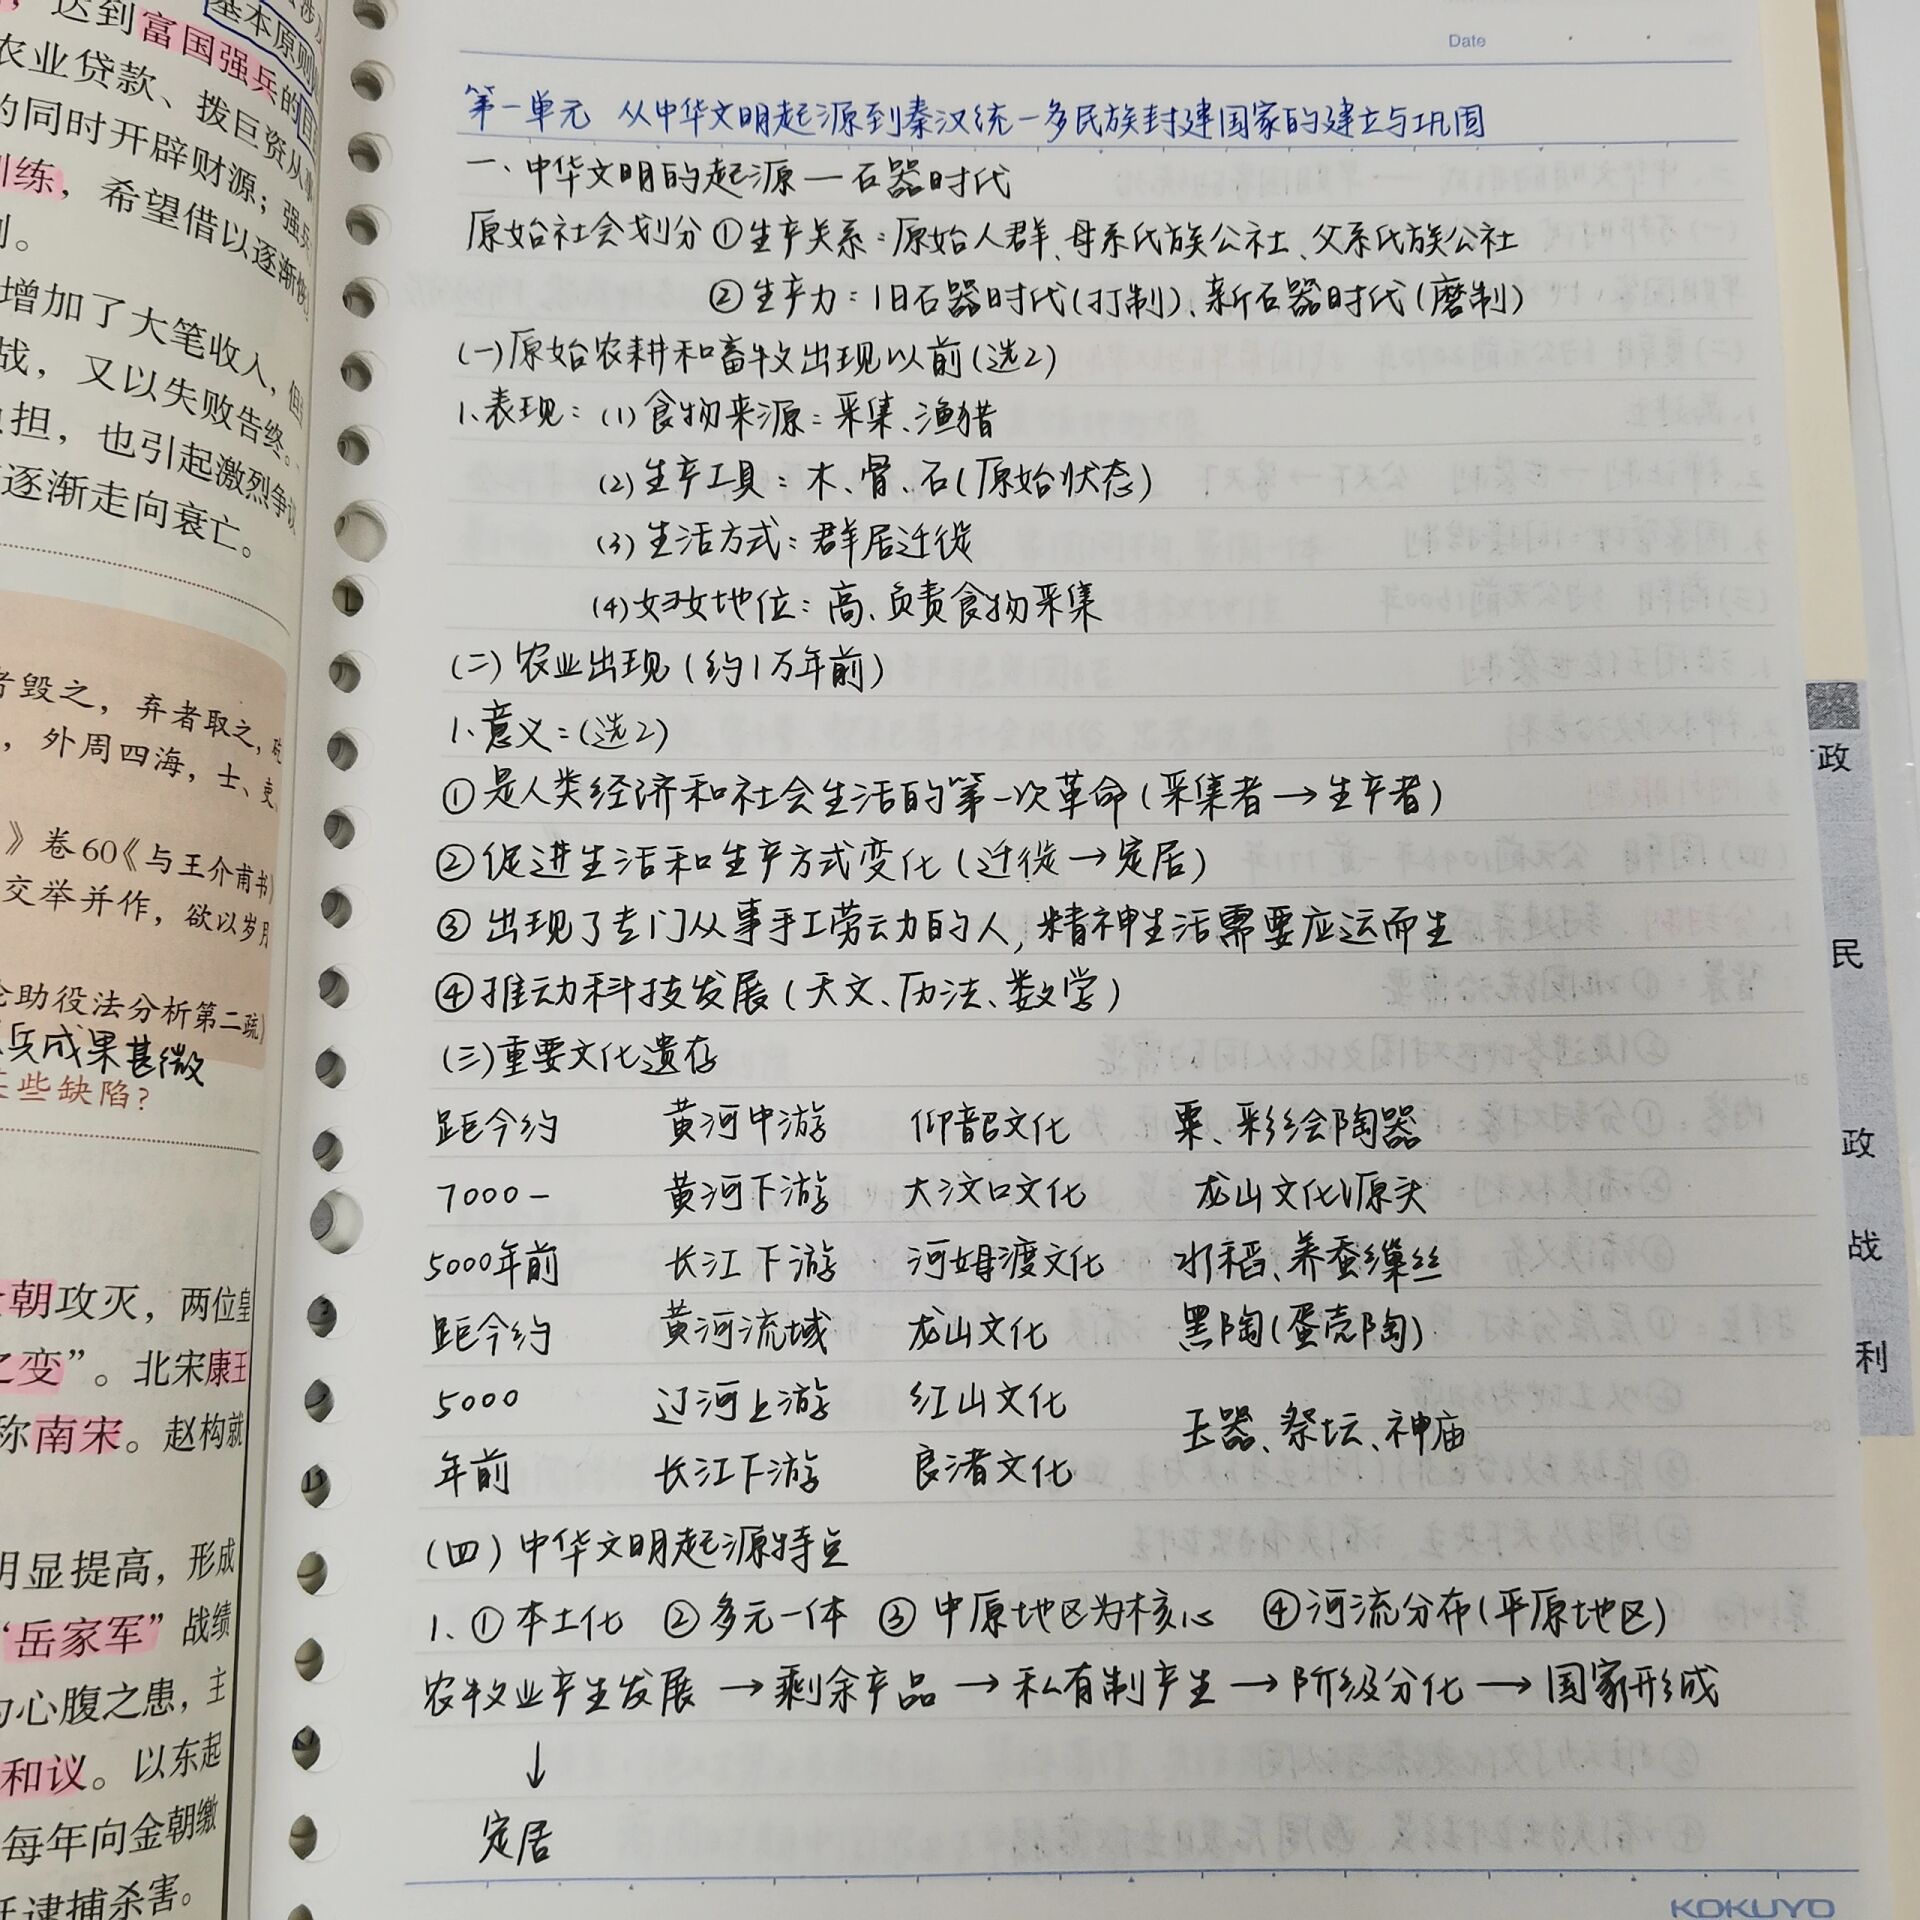 达到富国强兵的
基本原则
农业贷款、拨巨资从事
的同时开辟财源；强兵
训练，希望借以逐渐
增加了大笔收入，但
战，又以失败告终。
担，也引起激烈争议
逐渐走向衰亡。
者毁之，弃者取之，
，外周四海，士、吏
》卷60《与王介甫书》
交举并作，欲以岁月
论助役法分析第二疏》
兵成果甚微
些缺陷？
朝攻灭，两位皇
之变”。北宋康王
称南宋。赵构就
明显提高，形成
“岳家军”战绩
心腹之患，主
和议。以东起
每年向金朝缴
逮捕杀害。
Date
第一单元 从中华文明起源到秦汉统一多民族封建国家的建立与巩固
一、中华文明的起源—石器时代
原始社会划分①生产关系：原始人群、母系氏族公社、父系氏族公社
②生产力：旧石器时代(打制)、新石器时代(磨制)
(一)原始农耕和畜牧出现以前(选2)
1.表现：(1)食物来源：采集、渔猎
(2)生产工具：木、骨、石(原始状态)
(3)生活方式：群居迁徙
(4)妇女地位：高、负责食物采集
(二)农业出现(约1万年前)
1.意义：(选2)
①是人类经济和社会生活的第一次革命(采集者→生产者)
②促进生活和生产方式变化(迁徙→定居)
③出现了专门从事手工劳动力的人，精神生活需要应运而生
④推动科技发展(天文、历法、数学)
(三)重要文化遗存
距今约 黄河中游 仰韶文化 粟、彩绘陶器
7000- 黄河下游 大汶口文化 龙山文化源头
5000年前 长江下游 河姆渡文化 水稻、养蚕缫丝
距今约 黄河流域 龙山文化 黑陶(蛋壳陶)
5000 辽河上游 红山文化
玉器、祭坛、神庙
年前 长江下游 良渚文化
(四)中华文明起源特点
1.①本土化 ②多元一体 ③中原地区为核心 ④河流分布(平原地区)
农牧业产生发展→剩余产品→私有制产生→阶级分化→国家形成
↓
定居
KOKUYO
政
民
政
战
利